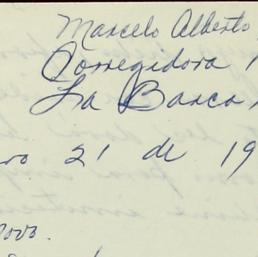 Marcelo Alberto
Corregidora 1
La Barca
ro 21 de 19